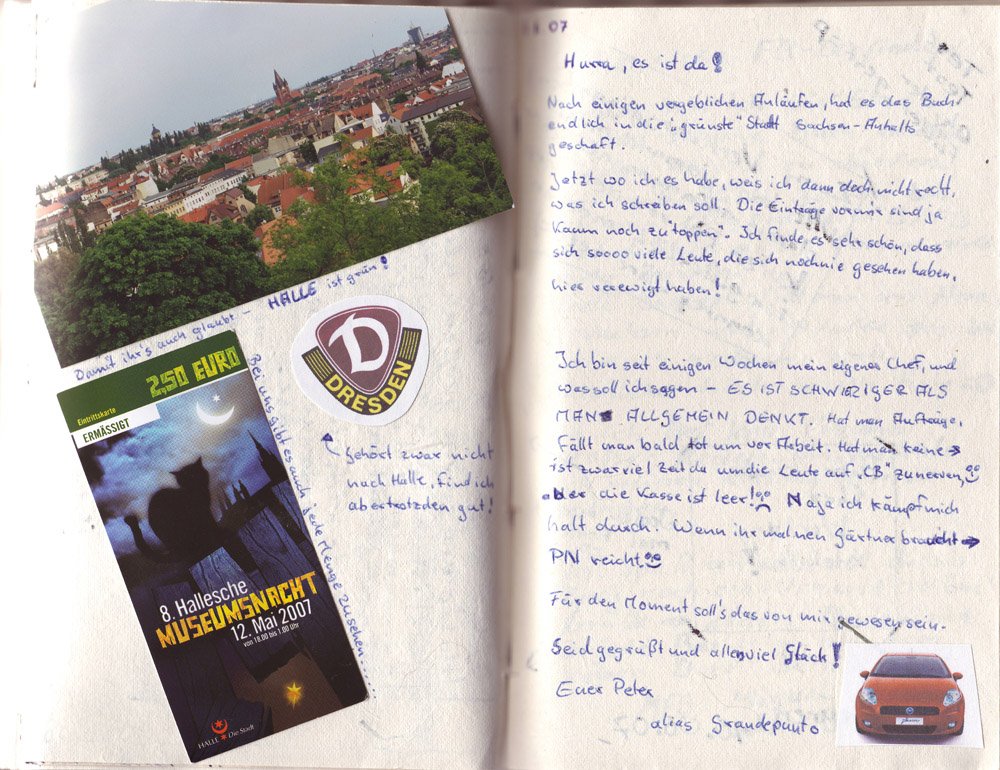 Damit ihr's auch glaubt - HALLE ist grün!
250 EURO
Eintrittskarte
ERMÄSSIGT
8. Hallesche
MUSEUMSNACHT
12. Mai 2007
von 18.00 bis 1.00 Uhr
HALLE Die Stadt
Bei uns gibt es auch jede Menge zu sehen......
D
DRESDEN
Gehört zwar nicht
nach Halle, find ich
aber trotzden gut!
07
Hurra, es ist da!
Nach einigen vergeblichen Anläufen, hat es das Buch
endlich in die „grünste" Stadt Sachsen-Anhalts
geschaft.
Jetzt wo ich es habe, weis ich dann doch nicht recht,
was ich schreiben soll. Die Einträge vor mir sind ja
kaum noch zu "toppen". Ich finde, es sehr schön, dass
sich soooo viele Leute, die sich noch nie gesehen haben,
hier verewigt haben!
Ich bin seit einigen Wochen mein eigener Chef, und
was soll ich sagen - ES IST SCHWIERIGER ALS
MAN ALLGEMEIN DENKT. Hat man Aufträge,
fällt man bald tot um vor Arbeit. Hat man keine →
ist zwar viel Zeit da um die Leute auf „CB" zu nerven,
aber die Kasse ist leer! Naja ich kämpf mich
halt durch. Wenn ihr mal nen Gärtner braucht →
PN reicht
Für den Moment soll's das von mir gewesen sein.
Seid gegrüßt und allen viel Glück!
Euer Peter
alias Grandepunto